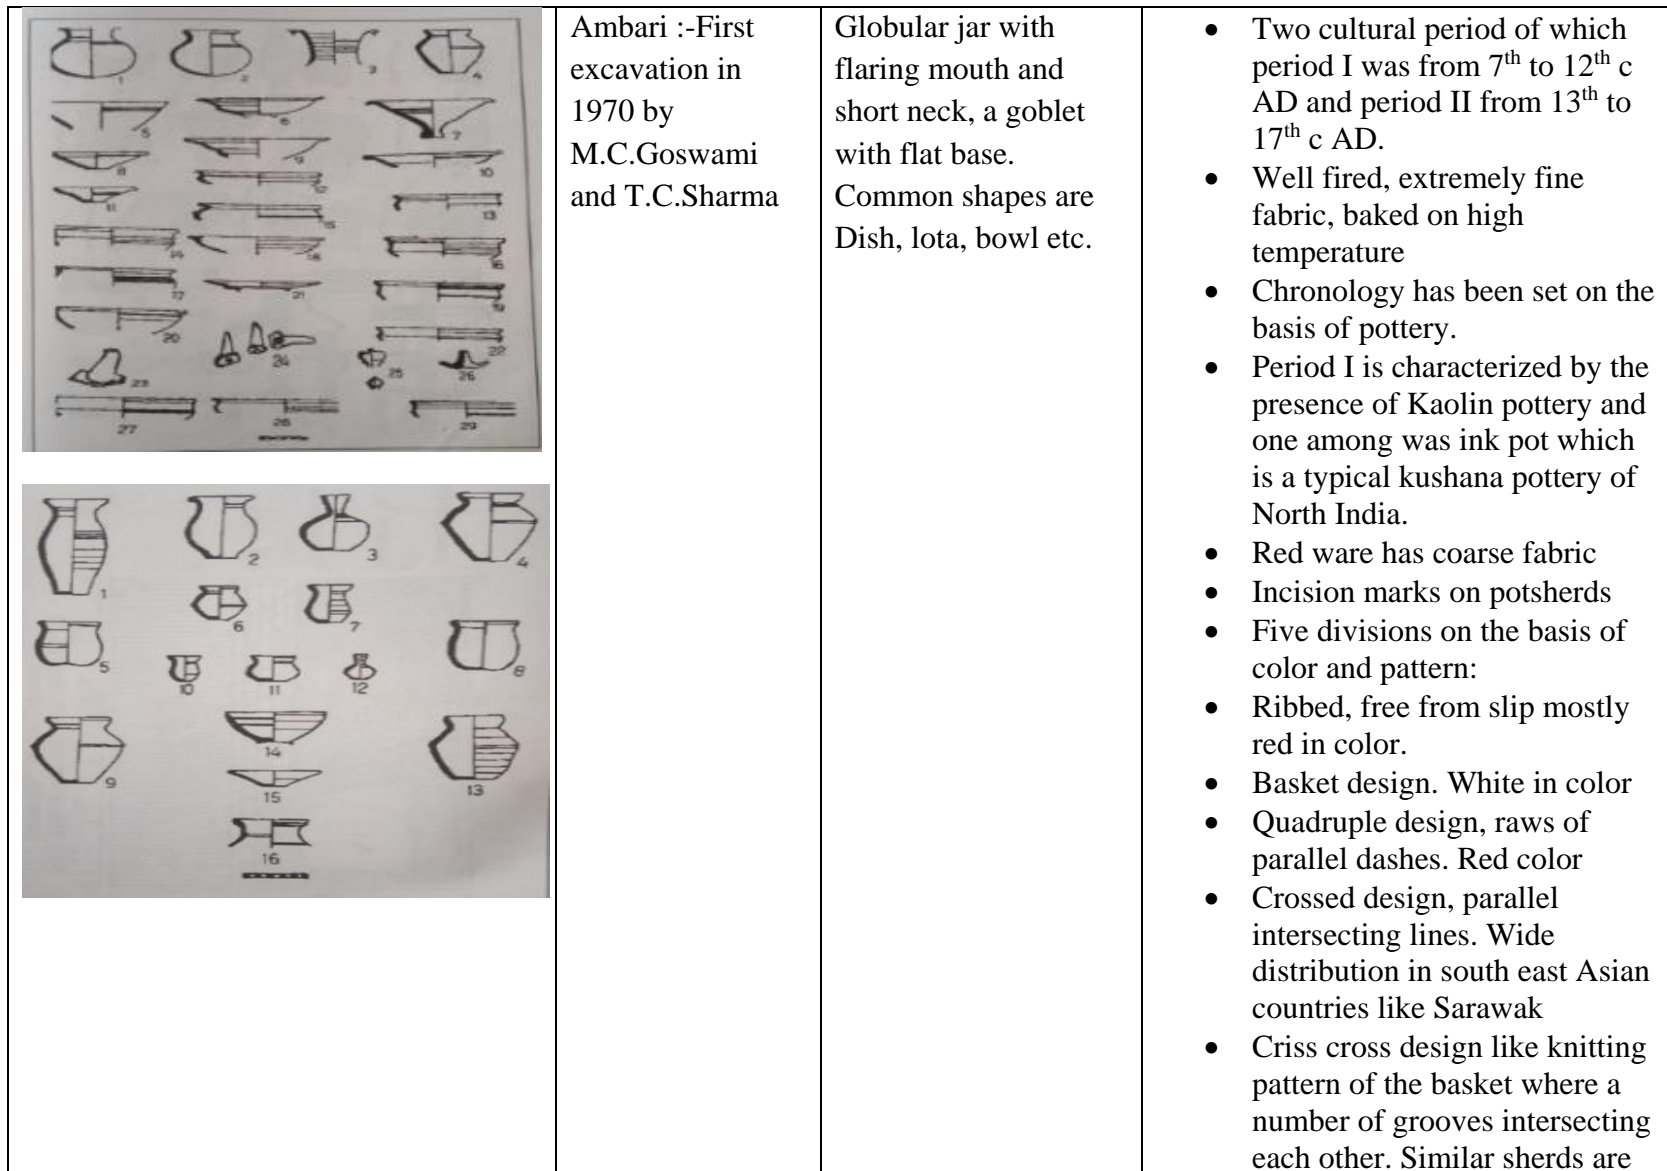 1 2 3 4
5 6 7
8 9 10
11 12 13
14 15 16
17 18 19
20 21 22
23 24 25 26
27 28 29
1 2 3 4
5 6 7 8
10 11 12
9 14 13
15
16
Ambari :-First
excavation in
1970 by
M.C.Goswami
and T.C.Sharma
Globular jar with
flaring mouth and
short neck, a goblet
with flat base.
Common shapes are
Dish, lota, bowl etc.
• Two cultural period of which
period I was from 7th to 12th c
AD and period II from 13th to
17th c AD.
• Well fired, extremely fine
fabric, baked on high
temperature
• Chronology has been set on the
basis of pottery.
• Period I is characterized by the
presence of Kaolin pottery and
one among was ink pot which
is a typical kushana pottery of
North India.
• Red ware has coarse fabric
• Incision marks on potsherds
• Five divisions on the basis of
color and pattern:
• Ribbed, free from slip mostly
red in color.
• Basket design. White in color
• Quadruple design, raws of
parallel dashes. Red color
• Crossed design, parallel
intersecting lines. Wide
distribution in south east Asian
countries like Sarawak
• Criss cross design like knitting
pattern of the basket where a
number of grooves intersecting
each other. Similar sherds are